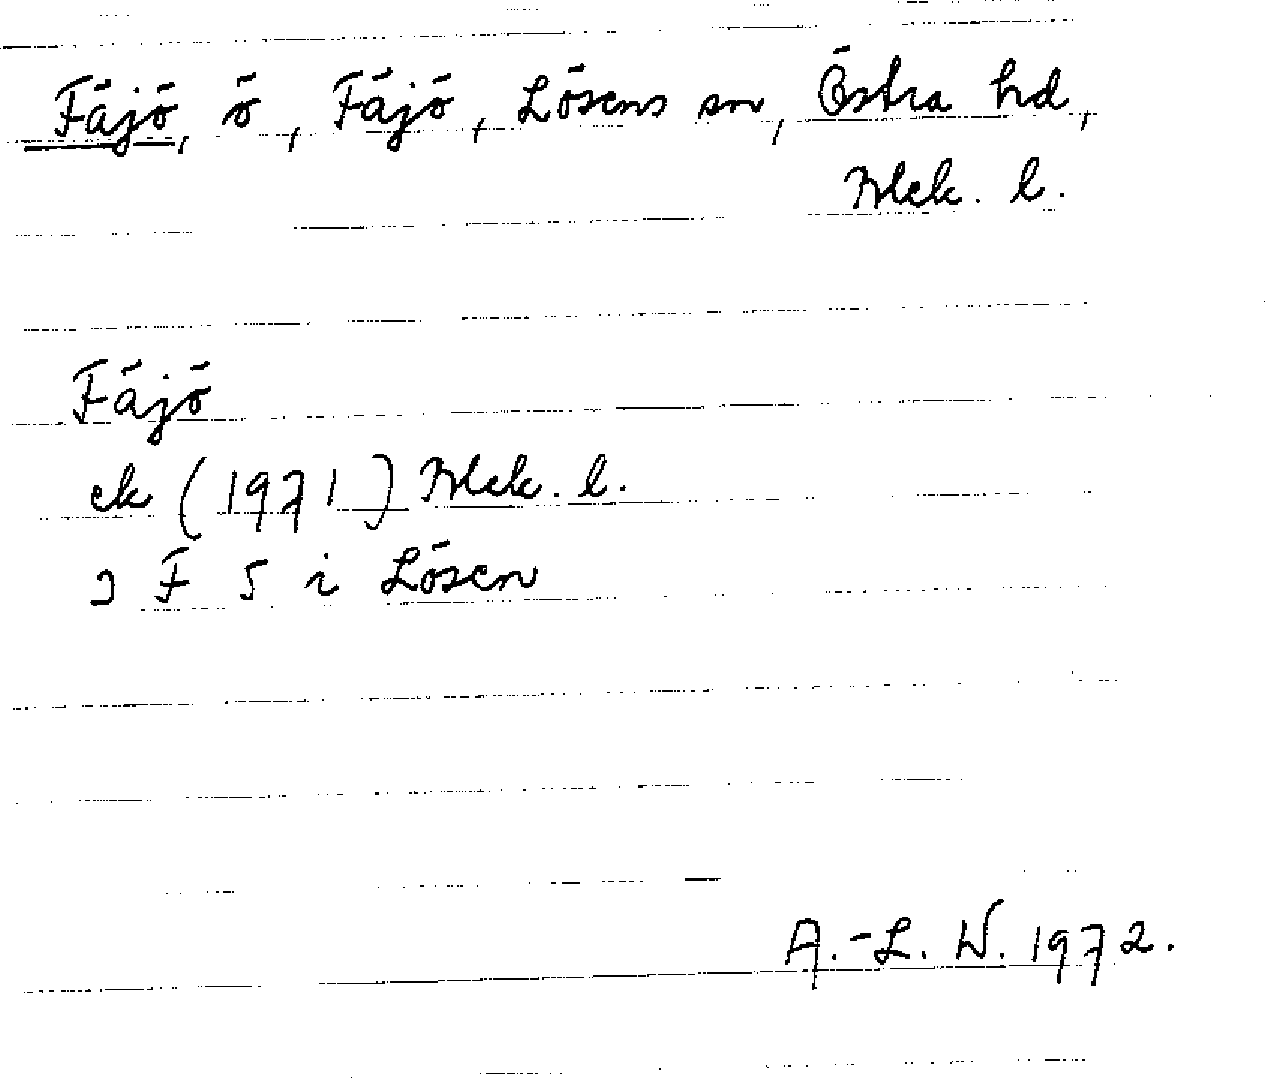 Fäjö, ö, Fäjö, Lösens sn, Östra hd,
Blek. l.
Fäjö
ek (1971) Blek. l.
3 F 5 i Lösen
A.-L. N. 1972.